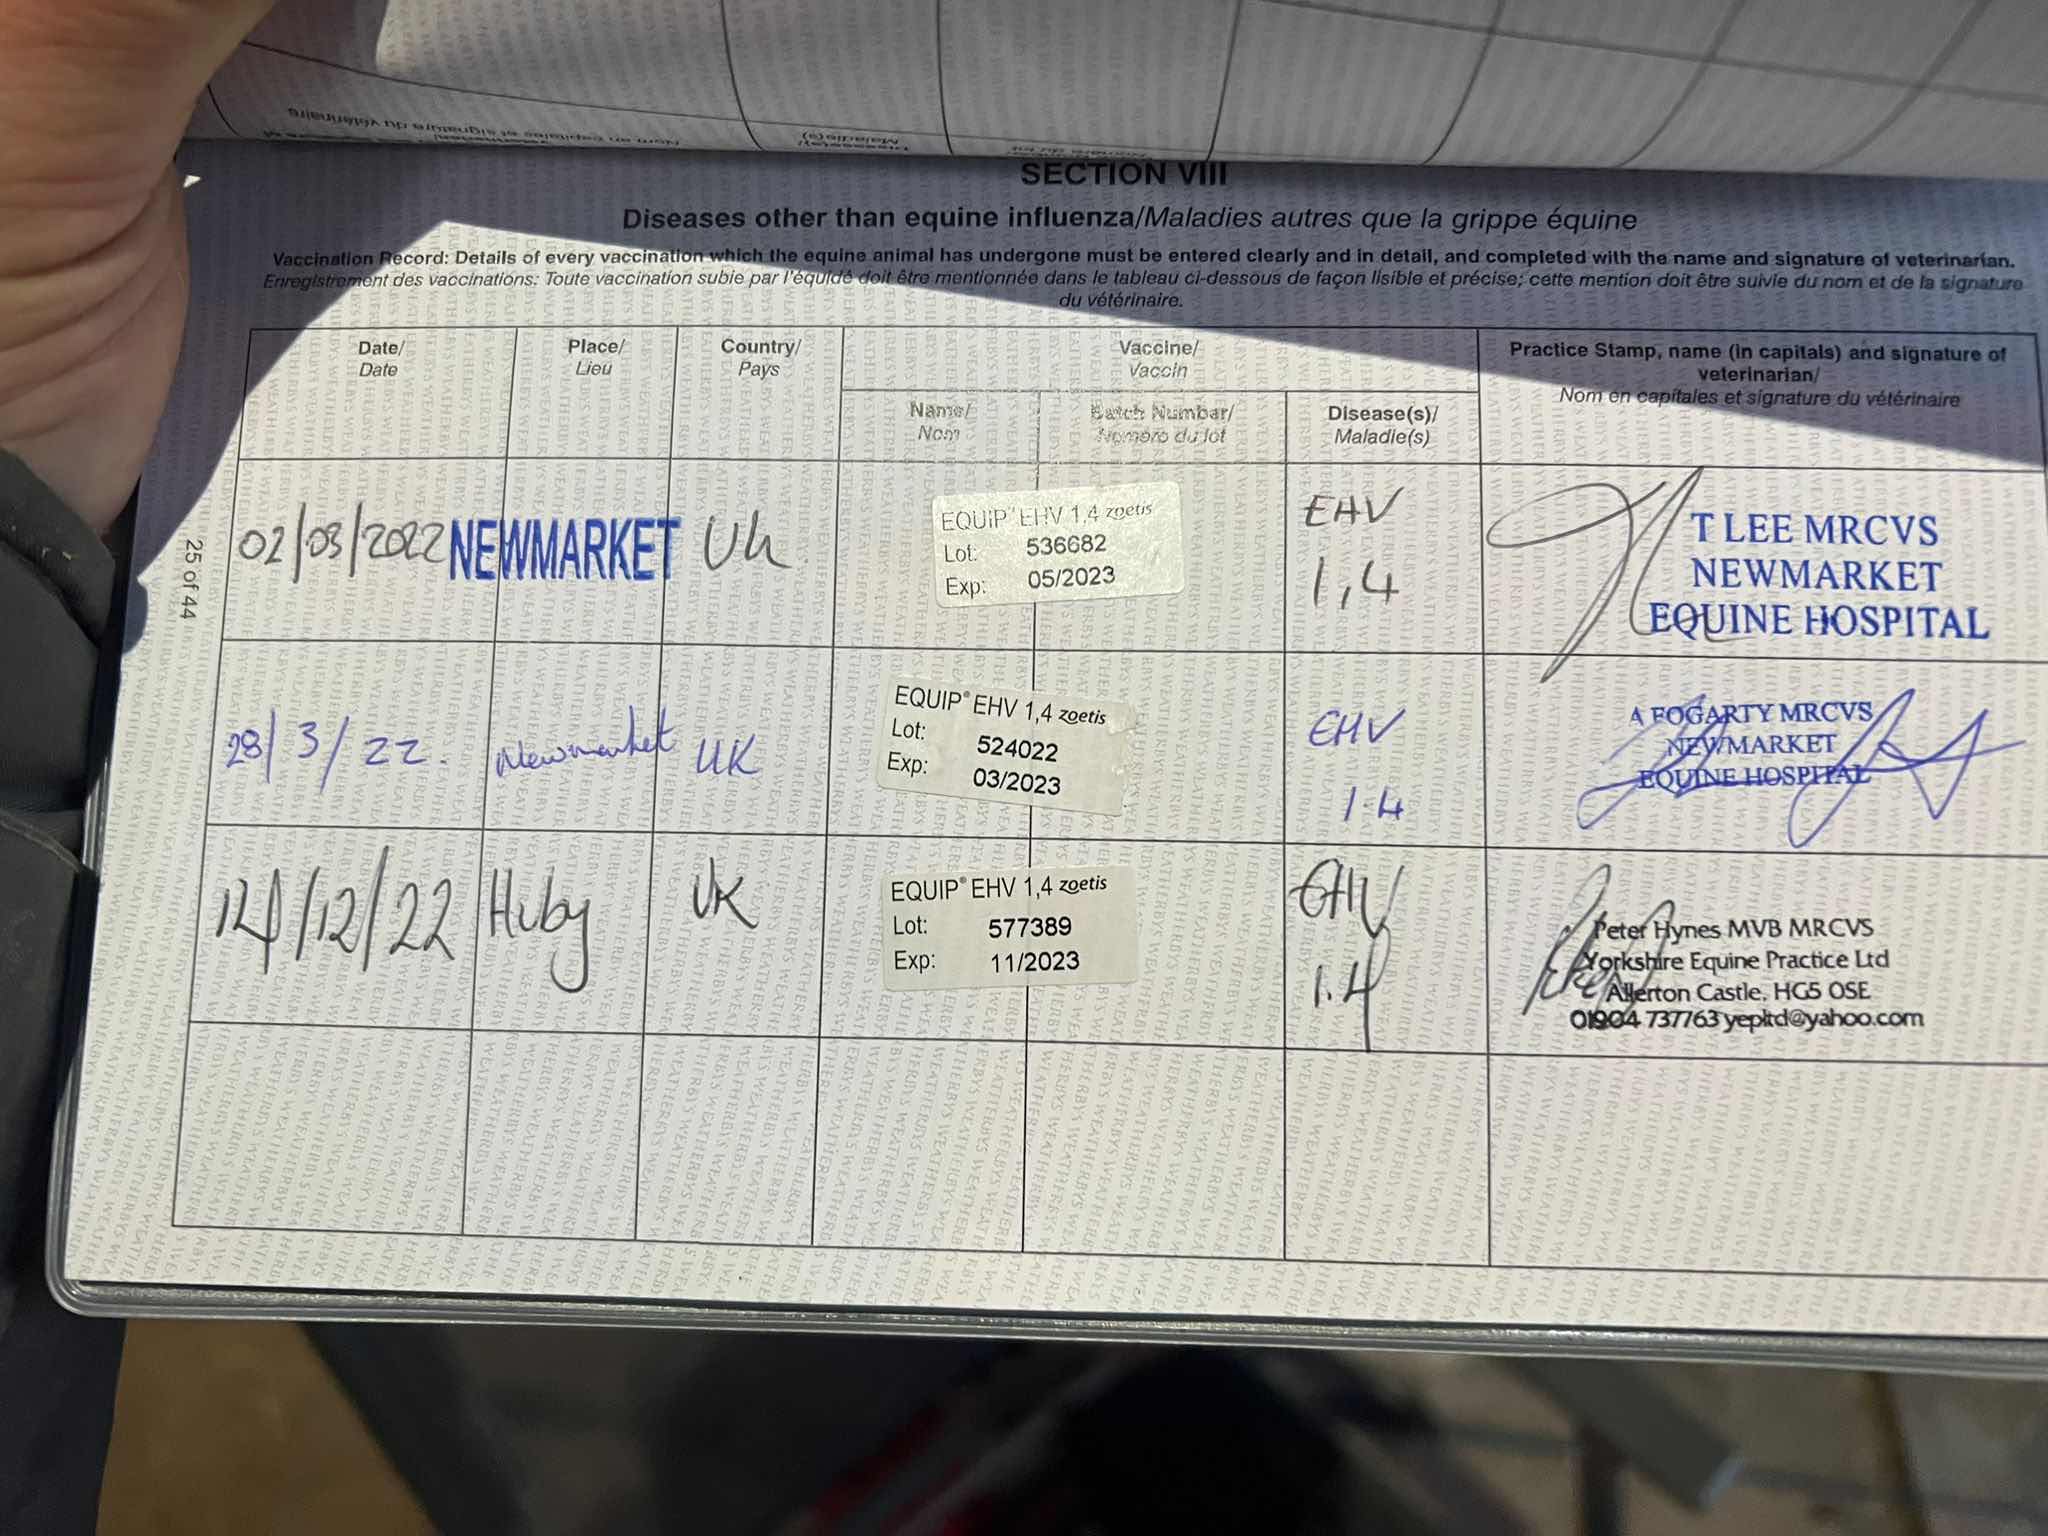 SECTION VIII
Diseases other than equine influenza/Maladies autres que la grippe équine
Vaccination Record: Details of every vaccination which the equine animal has undergone must be entered clearly and in detail, and completed with the name and signature of veterinarian.
Enregistrement des vaccinations: Toute vaccination subie par l'équidé doit être mentionnée dans le tableau ci-dessous de façon lisible et précise; cette mention doit être suivie du nom et de la signature
du vétérinaire.
Date/
Date
Place/
Lieu
Country/
Pays
Vaccine/
Vaccin
Name/
Nom
Batch Number/
Numéro du lot
Disease(s)/
Maladie(s)
Practice Stamp, name (in capitals) and signature of
veterinarian/
Nom en capitales et signature du vétérinaire
02/03/2022
NEWMARKET
Uk
EQUIP® EHV 1,4 zoetis
Lot: 536682
Exp: 05/2023
EHV
1,4
T LEE MRCVS
NEWMARKET
EQUINE HOSPITAL
28/3/22.
Newmarket
UK
EQUIP® EHV 1,4 zoetis
Lot: 524022
Exp: 03/2023
EHV
1.4
A FOGARTY MRCVS
NEWMARKET
EQUINE HOSPITAL
14/12/22
Huby
UK
EQUIP® EHV 1,4 zoetis
Lot: 577389
Exp: 11/2023
EHV
1.4
Peter Hynes MVB MRCVS
Yorkshire Equine Practice Ltd
Allerton Castle, HG5 0SE
01904 737763 yepltd@yahoo.com
25 of 44